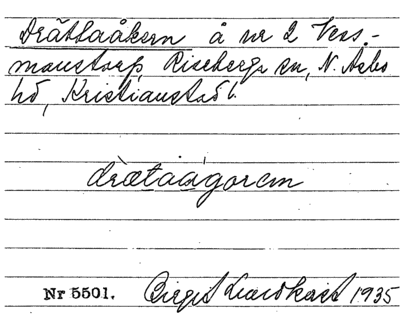 Drätlaåkern å nr 2 Vers-
manstorp, Riseberga sn, N. Åsbo
hd, Kristianstad l.
drætaågorem
Nr 5501. Birgit Lundkvist 1935